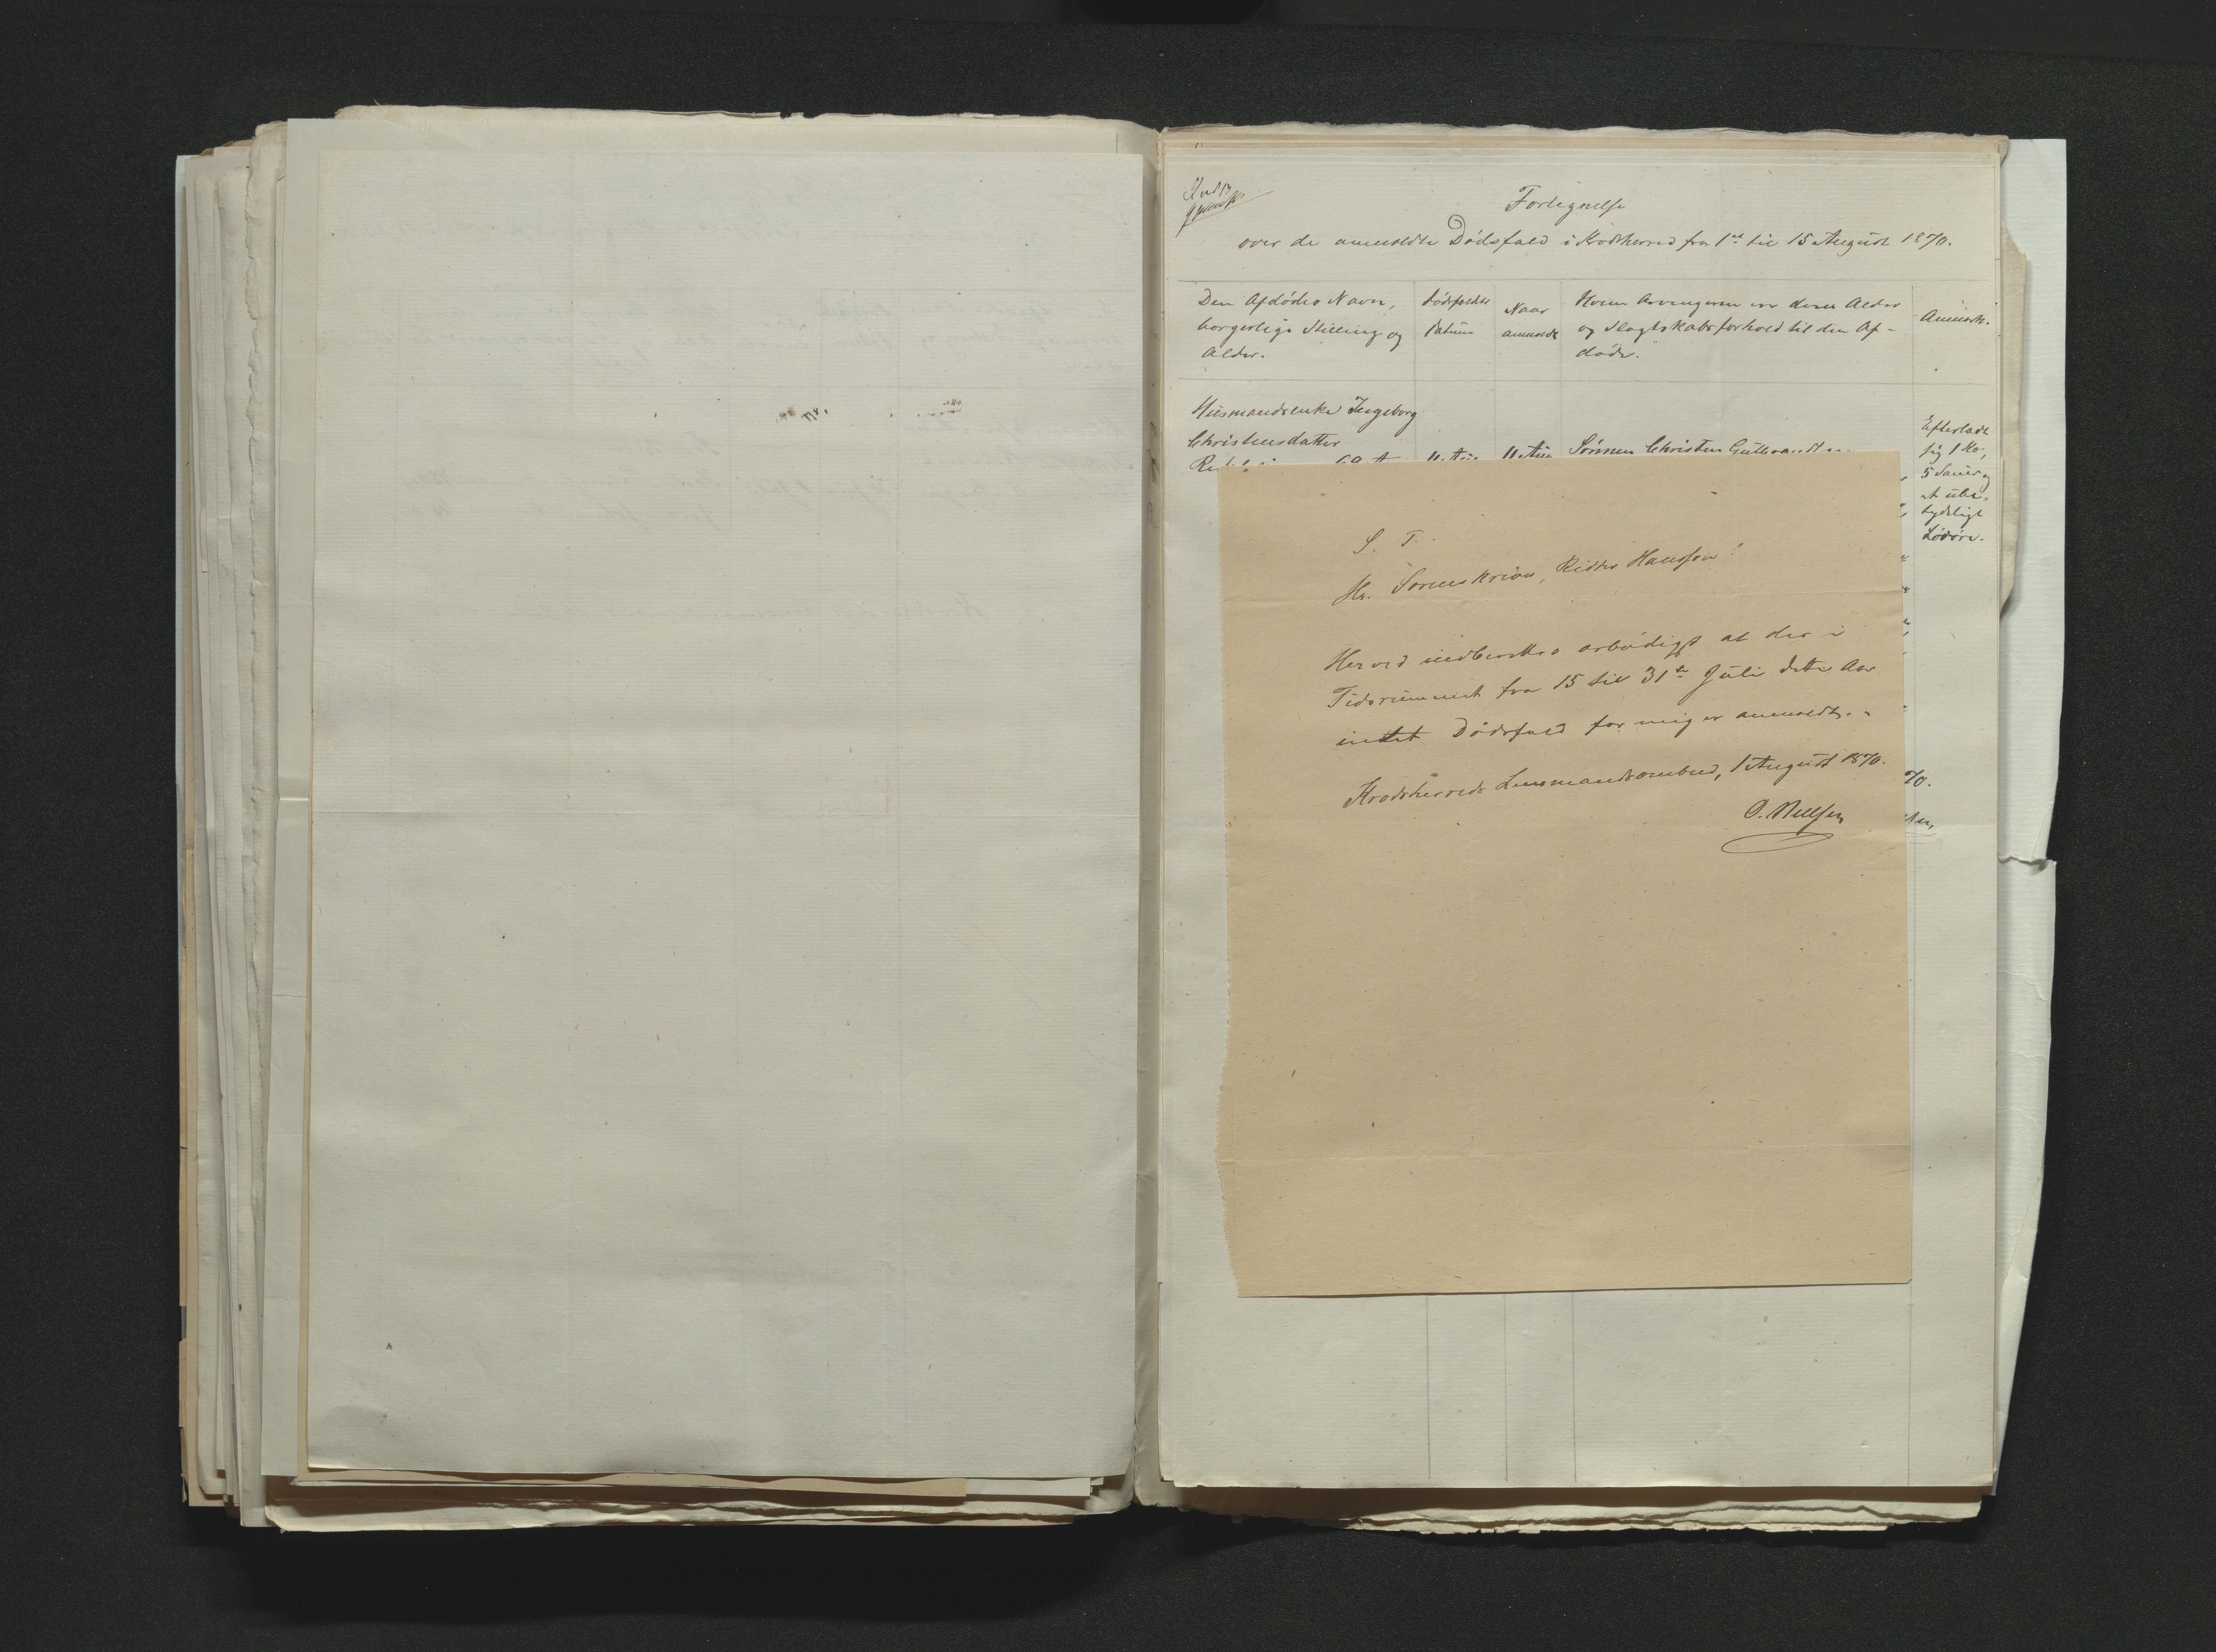 Fortegnelse
over de anmeldte Dødsfald i Krodsherred fra 1st til 15 August 1870.
Den Afdødes Navn,
borgerlige Stilling og
Alder.
Dødsfaldets
Datum
Naar
anmeldt
Hvem Arvingerne ere deres Alder
og Slægtskabsforhold til den Af-
døde.
Anmærk.
Husmandsenke Ingeborg
Christensdatter
11 Aug
Sønnen Christen Gulbrandsen
Efterladt
sig 1 Ko,
5 Sauer og
et ube-
tydeligt
Løsøre.
S. T.
Hr. Sorenskriver, Ridder Hansson!
Herved indberettes ærbødigst at der i
Tidsrummet fra 15 til 31te Juli dette Aar
intet Dødsfald for mig er anmeldt.
Krodsherreds Lensmandsombud, 1 August 1870.
O. Nielsen
70.